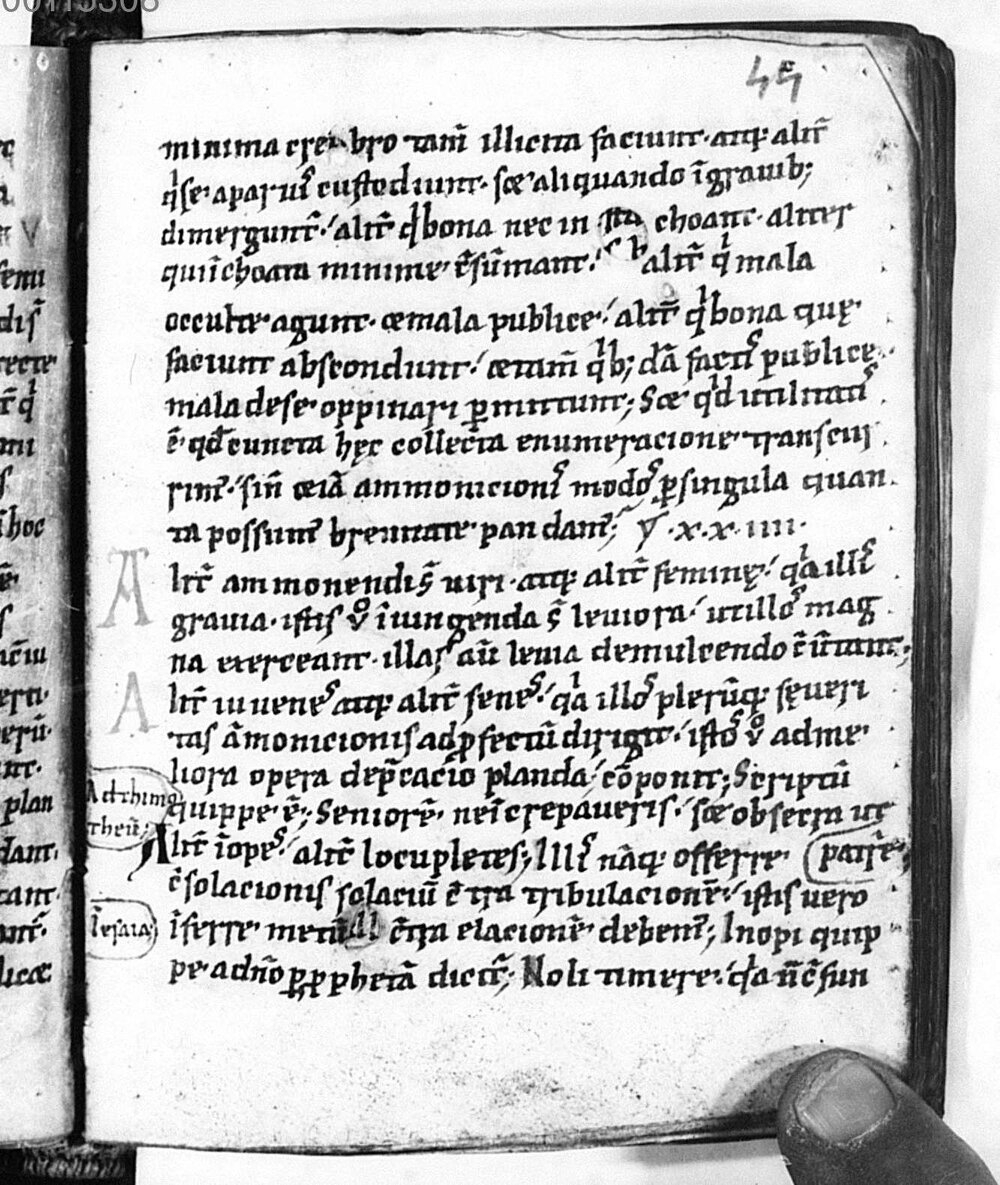 45
minima crebro tam̄ illicita faciunt. atq; alit̄
q̇ se a paruis custodiunt. sꝫ aliquando īgrauib;
dimergunt̄. alit̄ q̇ bona nec in choant. aliter
qui īchoata minime c̄sūmant. alit̄ q̇ mala
occulte agunt. & mala publice. alit̄ q̇ bona quę
faciunt abscondunt. & tam̄ q̇b; dā factis publice
mala de se oppinari ꝑmittunt; Sꝫ q̇d utilitatis
ē qđ cuncta hęc collecta enumeracione transcur
rim. si n̄ & iā ammonicionis modos ꝑ singula quan
ta possum breuitate pandam; V. x. x. iiii.
Alit̄ ammonendi s̄ uiri. atq; alit̄ feminę. qa illis
grauia. istis v̊ īiungenda s̄ leuiora. ut illos mag
na exerceant. illas aū leuia demulcendo c̄uertant;
Alit̄ iuuenes atq; alit̄ senes. qa illos plerūq; sęueri
tas āmonicionis ad ꝓfectū dirigit. istos v̊ ad me
liora opera dep̄cacio blanda cōponit; Scriptū
quippe ē; Seniorē ne īcrepaueris. sꝫ obsecra ut
patrē
Ad thimo
theū;
Alit̄ īopes. alit̄ locupletes; Illis nāq; offerre
c̄solacionis solaciū c̄tra tribulacionē. istis uero
īferre metū c̄tra elacionē debem; Inopi quip
Iesaia
pe a dn̄o ꝑ ꝓphetā dicit̄; Noli timere. qa n̄ c̄fun